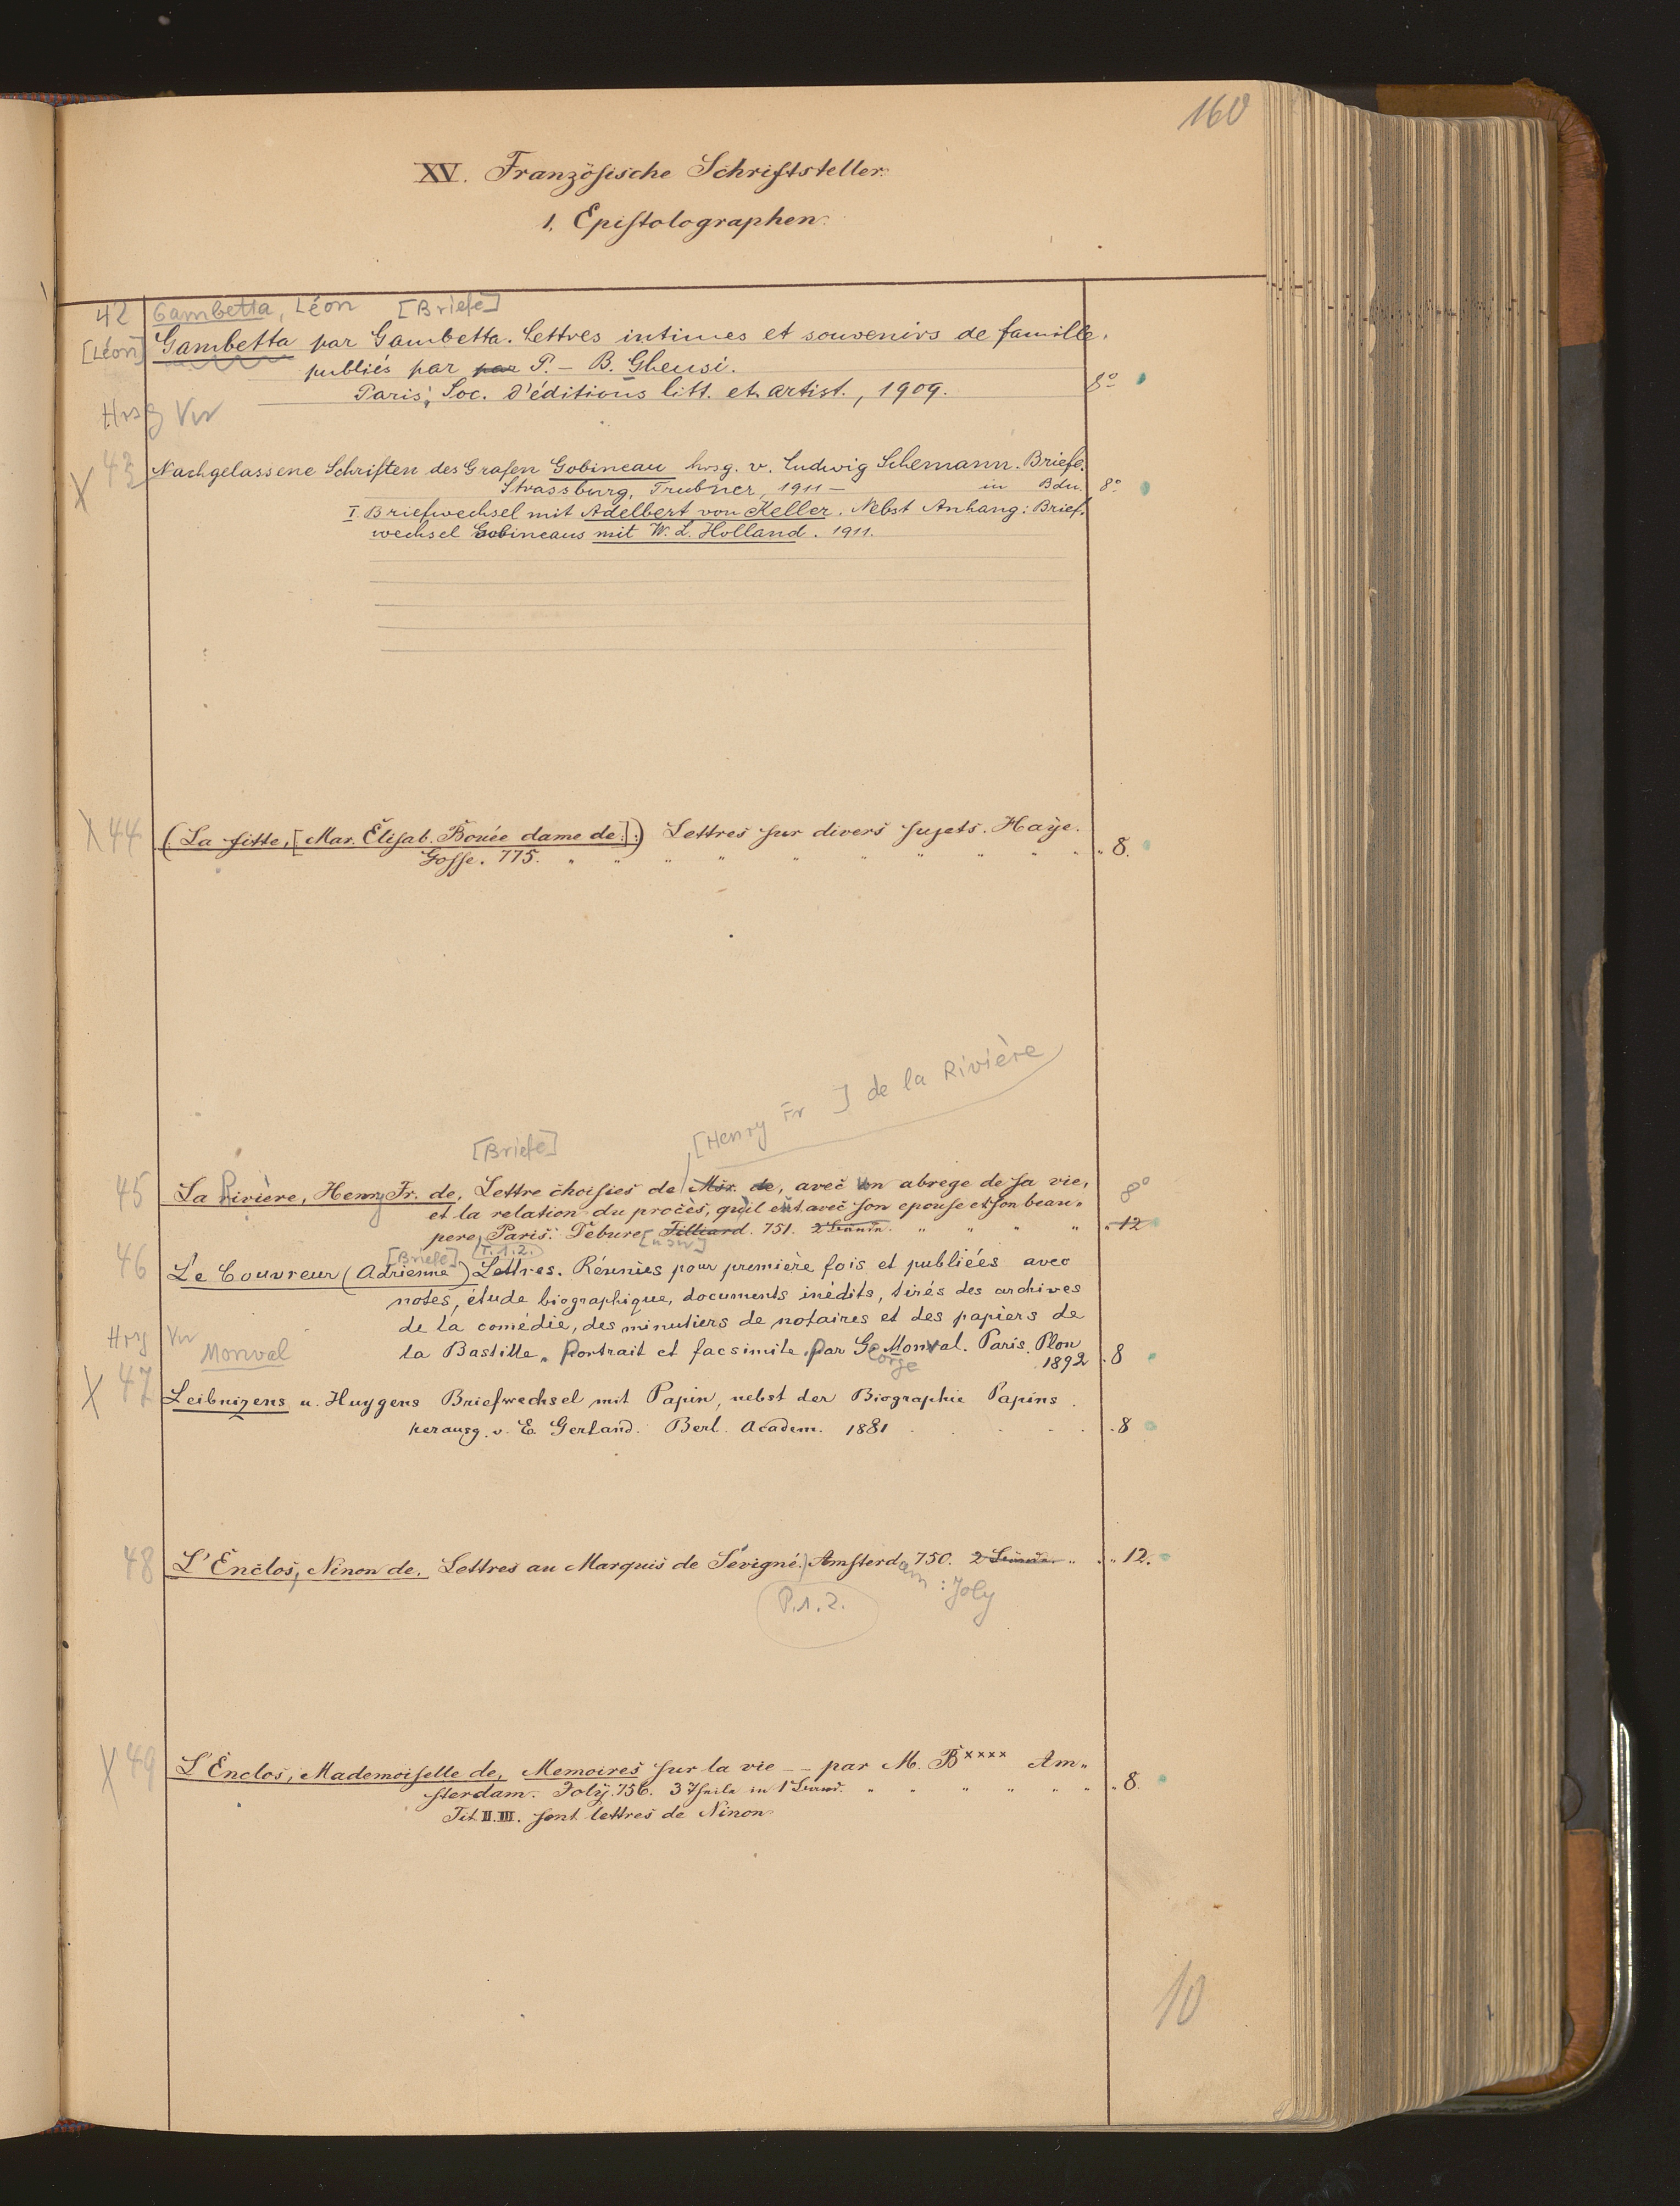 160
XV. Französische Schriftsteller.
1. Epistolographen.
42 Gambetta, Léon [Briefe]
[Léon] Gambetta par Gambetta. Lettres intimes et souvenirs de famille.
publiés par par P. – B. Gheusi.
Paris: Soc. d'éditions litt. et artist., 1909. 8°
Hrsg Vw
X 43 Nachgelassene Schriften des Grafen Gobineau hrsg. v. Ludwig Schemann. Briefe.
Strassburg, Trubner, 1911 – in Bdn. 8°
I. Briefwechsel mit Adelbert von Keller. Nebst Anhang: Brief-
wechsel Gobineaus mit W. L. Holland. 1911.
X 44 (La fitte, [Mar. Élisab. Bouée dame de].) Lettres sur divers sujets. Haÿe.
Gosse. 775. " " " " " " " " " " 8.
[Henry Fr ] de la Rivière
[Briefe]
45 La Rivière, Henry Fr. de, Lettre choisies de Msr. de, avec un abrege de sa vie,
et la relation du procès, qu'il eût avec son epouse et son beau-
pere, Paris. Debure [usw] Tilliard. 751. " " " " 12 8°
[Briefe] (T.1.2.)
46 Le Couvreur (Adrienne) Lettres. Réunies pour première fois et publiées avec
notes, étude biographique, documents inédits, tirés des archives
de la comédie, des minutiers de notaires et des papiers de
Hrg Vw Monval
la Bastille. Portrait et facsimile. par George Monval. Paris. Plon
1892 . 8
X 47 Leibnizens u. Huygens Briefwechsel mit Papin, nebst der Biographie Papins.
herausg. v. E. Gerland. Berl. Academ. 1881 . . . . . 8
48 L'Enclos, Ninon de, Lettres au Marquis de Sévigné. Amsterdam : Joly 750. " " 12.
P.1.2.
X 49 L'Enclos, Mademoiselle de, Memoires sur la vie -- par M. B×××× Am-
sterdam. Jolÿ. 756. 3 Theile in 1 " " " " " " 8.
Tit. II. III. sont lettres de Ninon
10